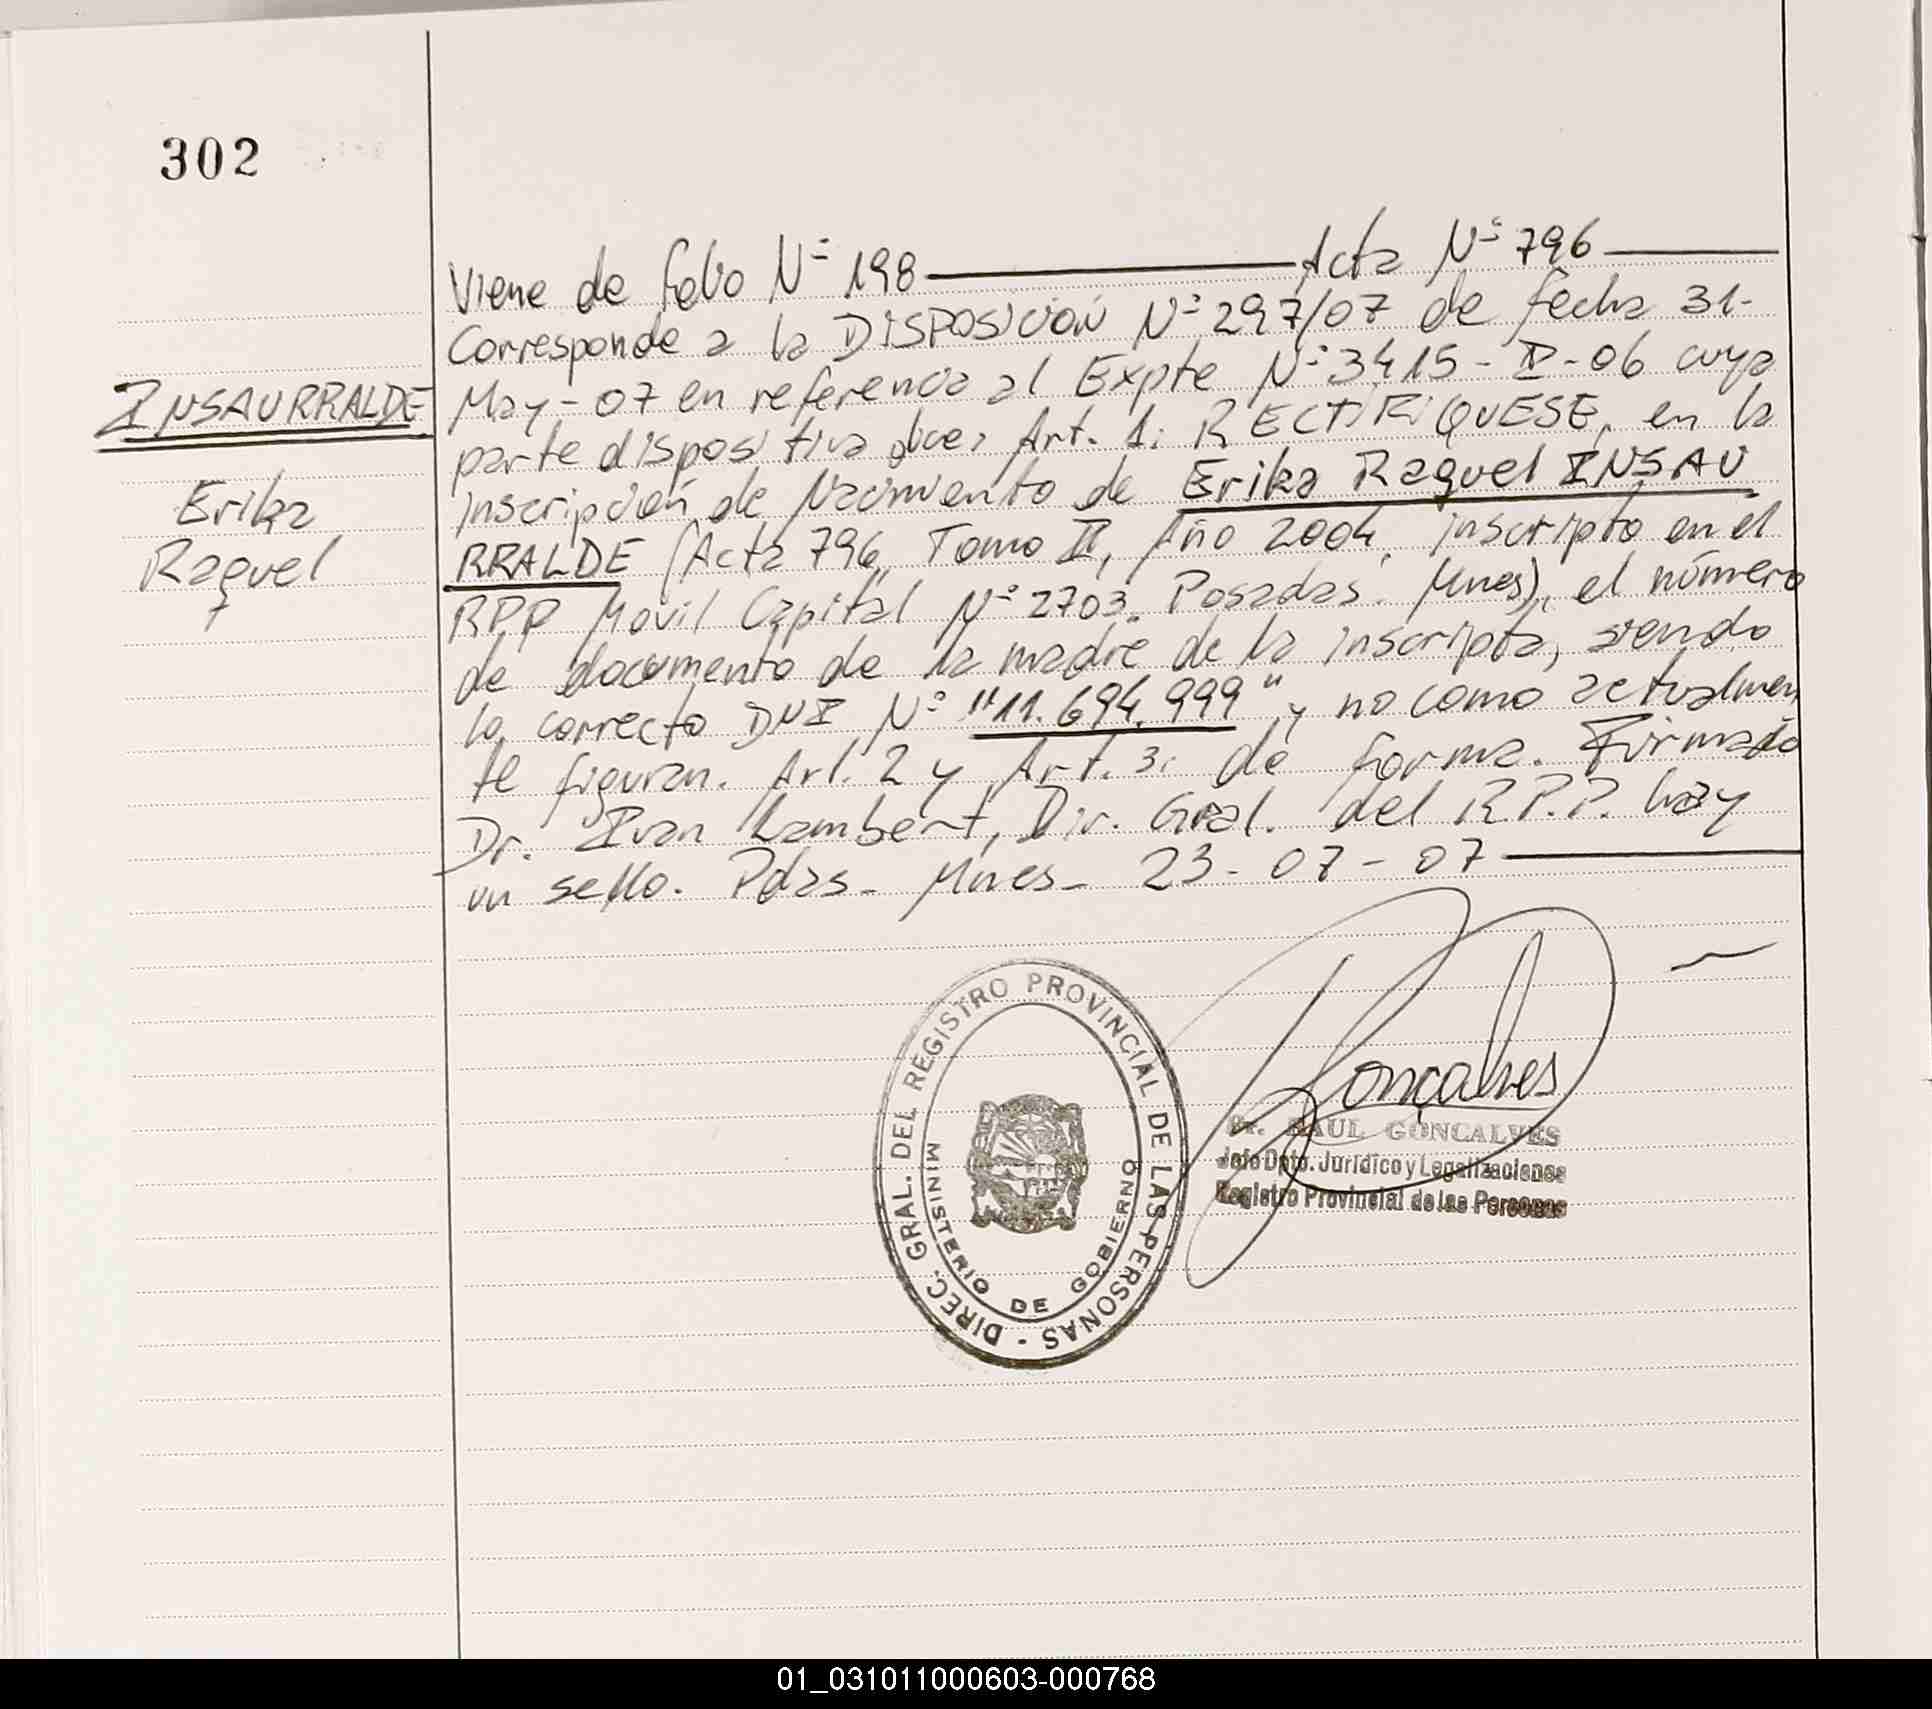 302
Viene de folio Nº 198 — Acta Nº 796 —
Corresponde a la DISPOSICIÓN Nº 297/07 de fecha 31-
INSAURRALDE
May-07 en referencia al Expte Nº 3415-I-06 cuya
parte dispositiva dice, Art. 1: RECTIFIQUESE, en la
Erika
inscripción de Nacimiento de Erika Raquel INSAU
Raquel
RRALDE (Acta 796, Tomo II, Año 2004, inscripto en el
RPP Movil Capital Nº 2703. Posadas. Mnes), el número
de documento de la madre de la inscripta, siendo
lo correcto DNI Nº "11.694.999" y no como actualmen
te figuran. Art. 2 y Art. 3: de forma. Firmado
Dr. Ivan Lambert, Dir. Gral. del R.P.P. hay
un sello. Pdas - Mnes - 23-07-07 —
DIREC. GRAL. DEL REGISTRO PROVINCIAL DE LAS PERSONAS -
MINISTERIO DE GOBIERNO
Gonçalves
Dr. RAUL GONCALVES
Jefe Dpto. Jurídico y Legalizaciones
Registro Provincial de las Personas
01_031011000603-000768